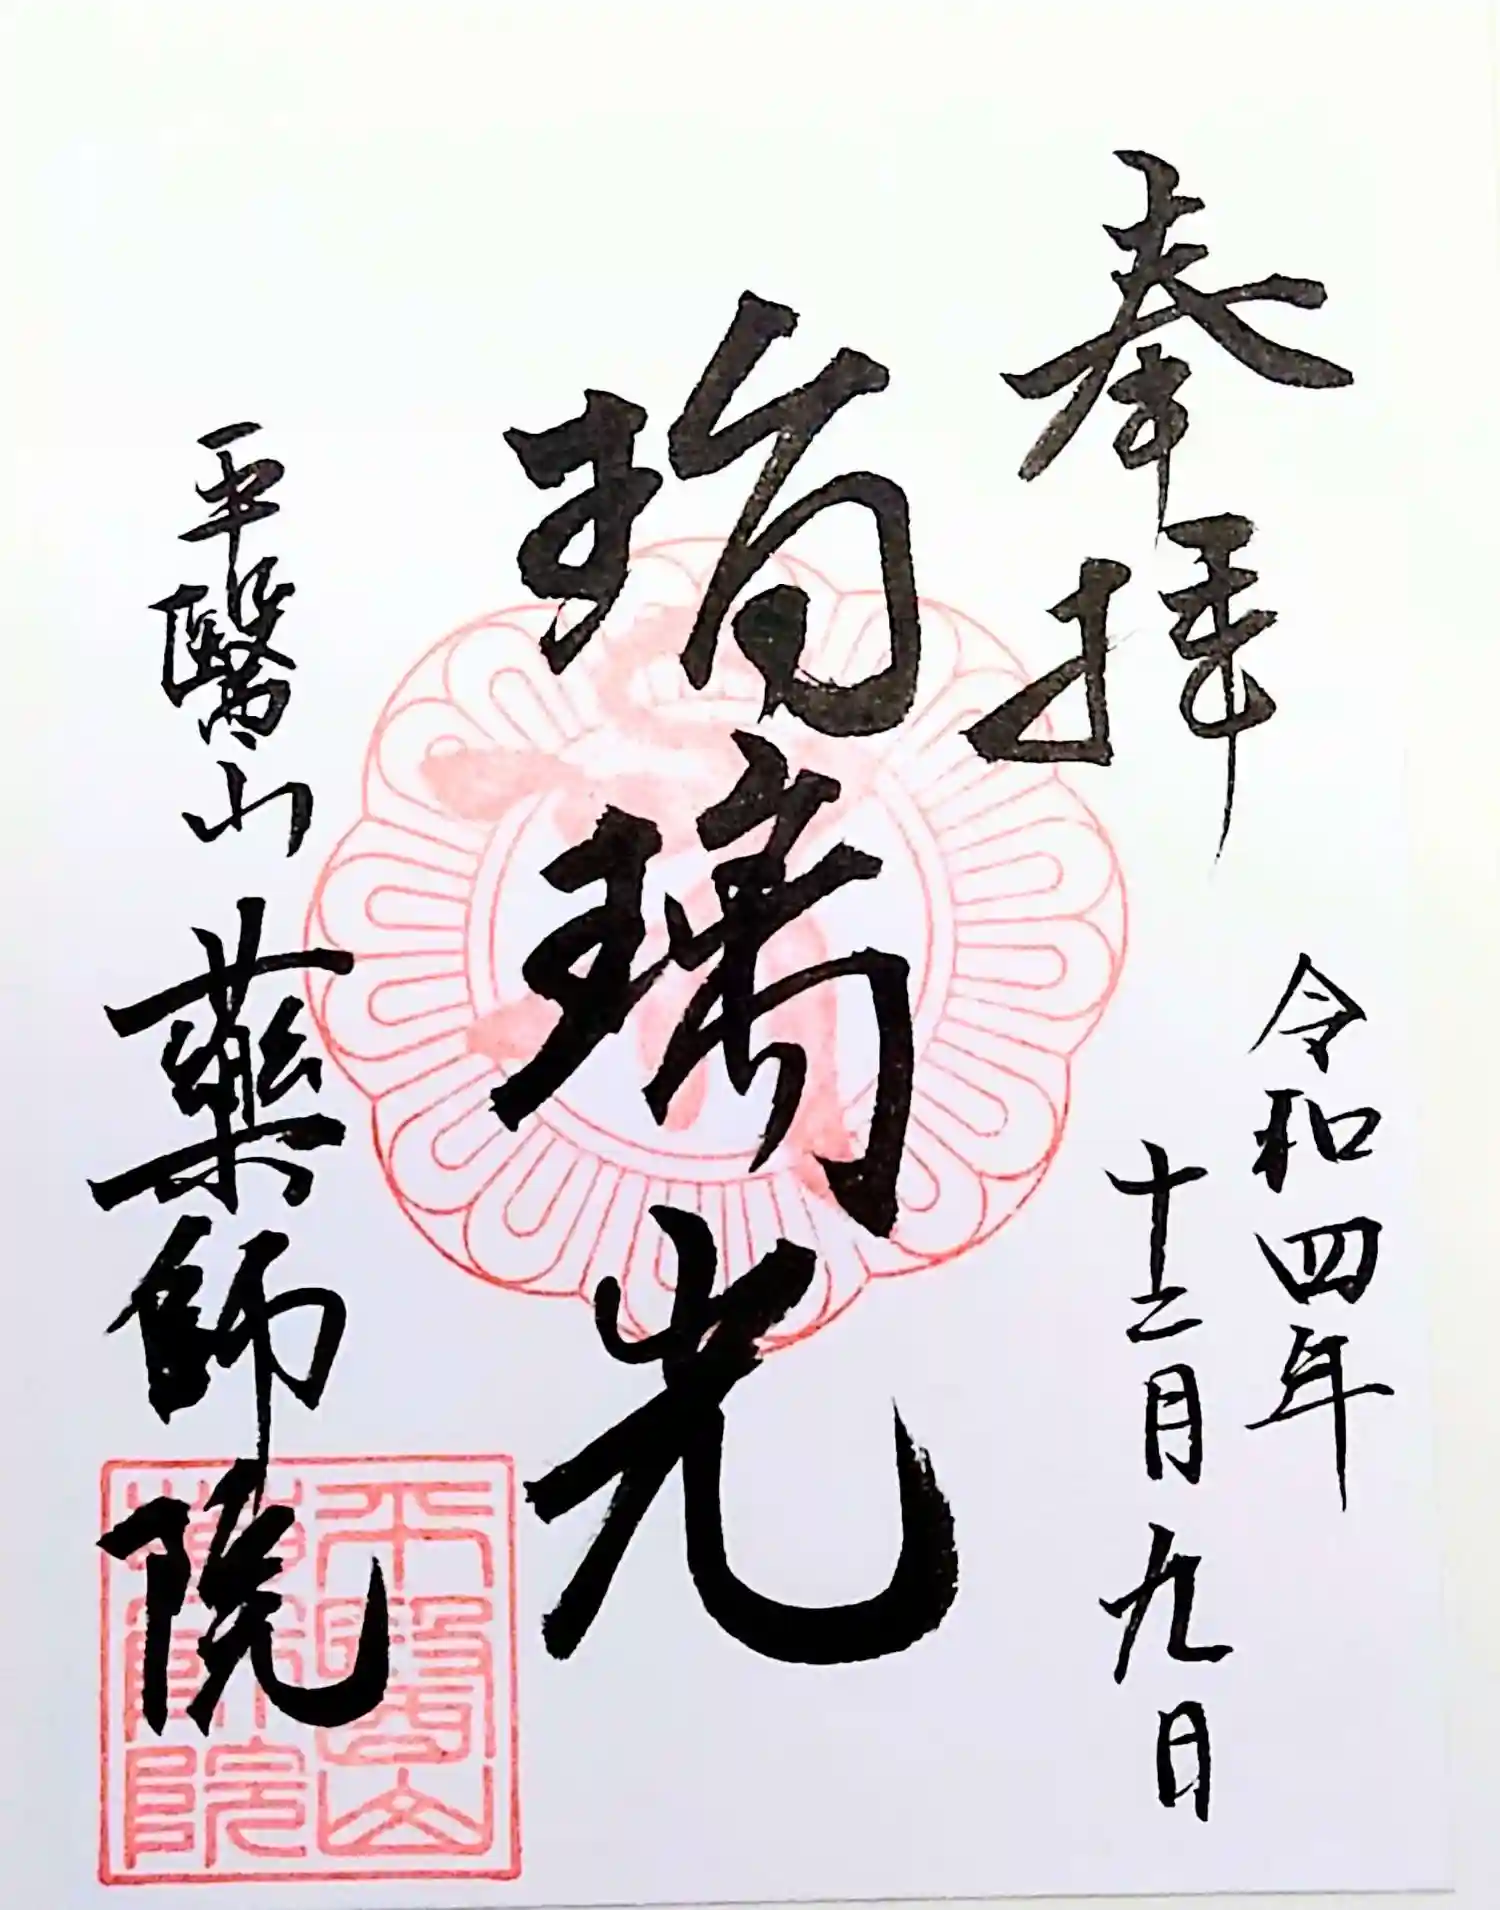 奉拝
令和四年
十二月九日
瑠璃光
平醫山
藥師院
平醫山
藥師院